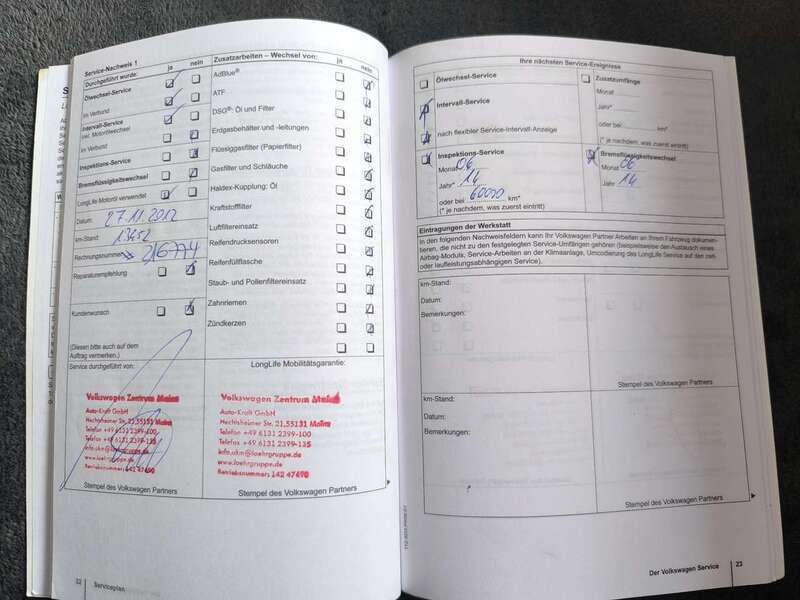 Service-Nachweis 1
Durchgeführt wurde: ja nein
Ölwechsel-Service
im Verbund
Intervall-Service
inkl. Motorölwechsel
im Verbund
Inspektions-Service
Bremsflüssigkeitswechsel
LongLife Motoröl verwendet
Datum: 27.11.2012
km-Stand: 13452
Rechnungsnummer: 216774
Reparaturempfehlung
Kundenwunsch
(Diesen bitte auch auf dem
Auftrag vermerken.)
Service durchgeführt von:
Volkswagen Zentrum Mainz
Auto-Kraft GmbH
Hechtsheimer Str. 21,55131 Mainz
Telefon +49 6131 2399-100
Telefax +49 6131 2399-125
info.vkm@loehrgruppe.de
www.loehrgruppe.de
Betriebsnummer: 142 47490
Stempel des Volkswagen Partners
22 Serviceplan
Zusatzarbeiten – Wechsel von: ja nein
AdBlue®
ATF
DSG®- Öl und Filter
Erdgasbehälter und -leitungen
Flüssiggasfilter (Papierfilter)
Gasfilter und Schläuche
Haldex-Kupplung: Öl
Kraftstofffilter
Luftfiltereinsatz
Reifendrucksensoren
Reifenfüllflasche
Staub- und Pollenfiltereinsatz
Zahnriemen
Zündkerzen
LongLife Mobilitätsgarantie:
Volkswagen Zentrum Mainz
Auto-Kraft GmbH
Hechtsheimer Str. 21,55131 Mainz
Telefon +49 6131 2399-100
Telefax +49 6131 2399-125
info.vkm@loehrgruppe.de
www.loehrgruppe.de
Betriebsnummer: 142 47490
Stempel des Volkswagen Partners
Ihre nächsten Service-Ereignisse
Ölwechsel-Service
Intervall-Service
nach flexibler Service-Intervall-Anzeige
Zusatzumfänge:
Monat
Jahr*
oder bei km*
(* je nachdem, was zuerst eintritt)
Inspektions-Service
Monat 06
Jahr* 14
oder bei 60000 km*
(* je nachdem, was zuerst eintritt)
Bremsflüssigkeitswechsel
Monat 06
Jahr 14
Eintragungen der Werkstatt
In den folgenden Nachweisfeldern kann Ihr Volkswagen Partner Arbeiten an Ihrem Fahrzeug dokumen-
tieren, die nicht zu den festgelegten Service-Umfängen gehören (beispielsweise den Austausch eines
Airbag-Moduls, Service-Arbeiten an der Klimaanlage, Umcodierung des LongLife Service auf den zeit-
oder laufleistungsabhängigen Service).
km-Stand:
Datum:
Bemerkungen:
Stempel des Volkswagen Partners
km-Stand:
Datum:
Bemerkungen:
Stempel des Volkswagen Partners
Der Volkswagen Service 23